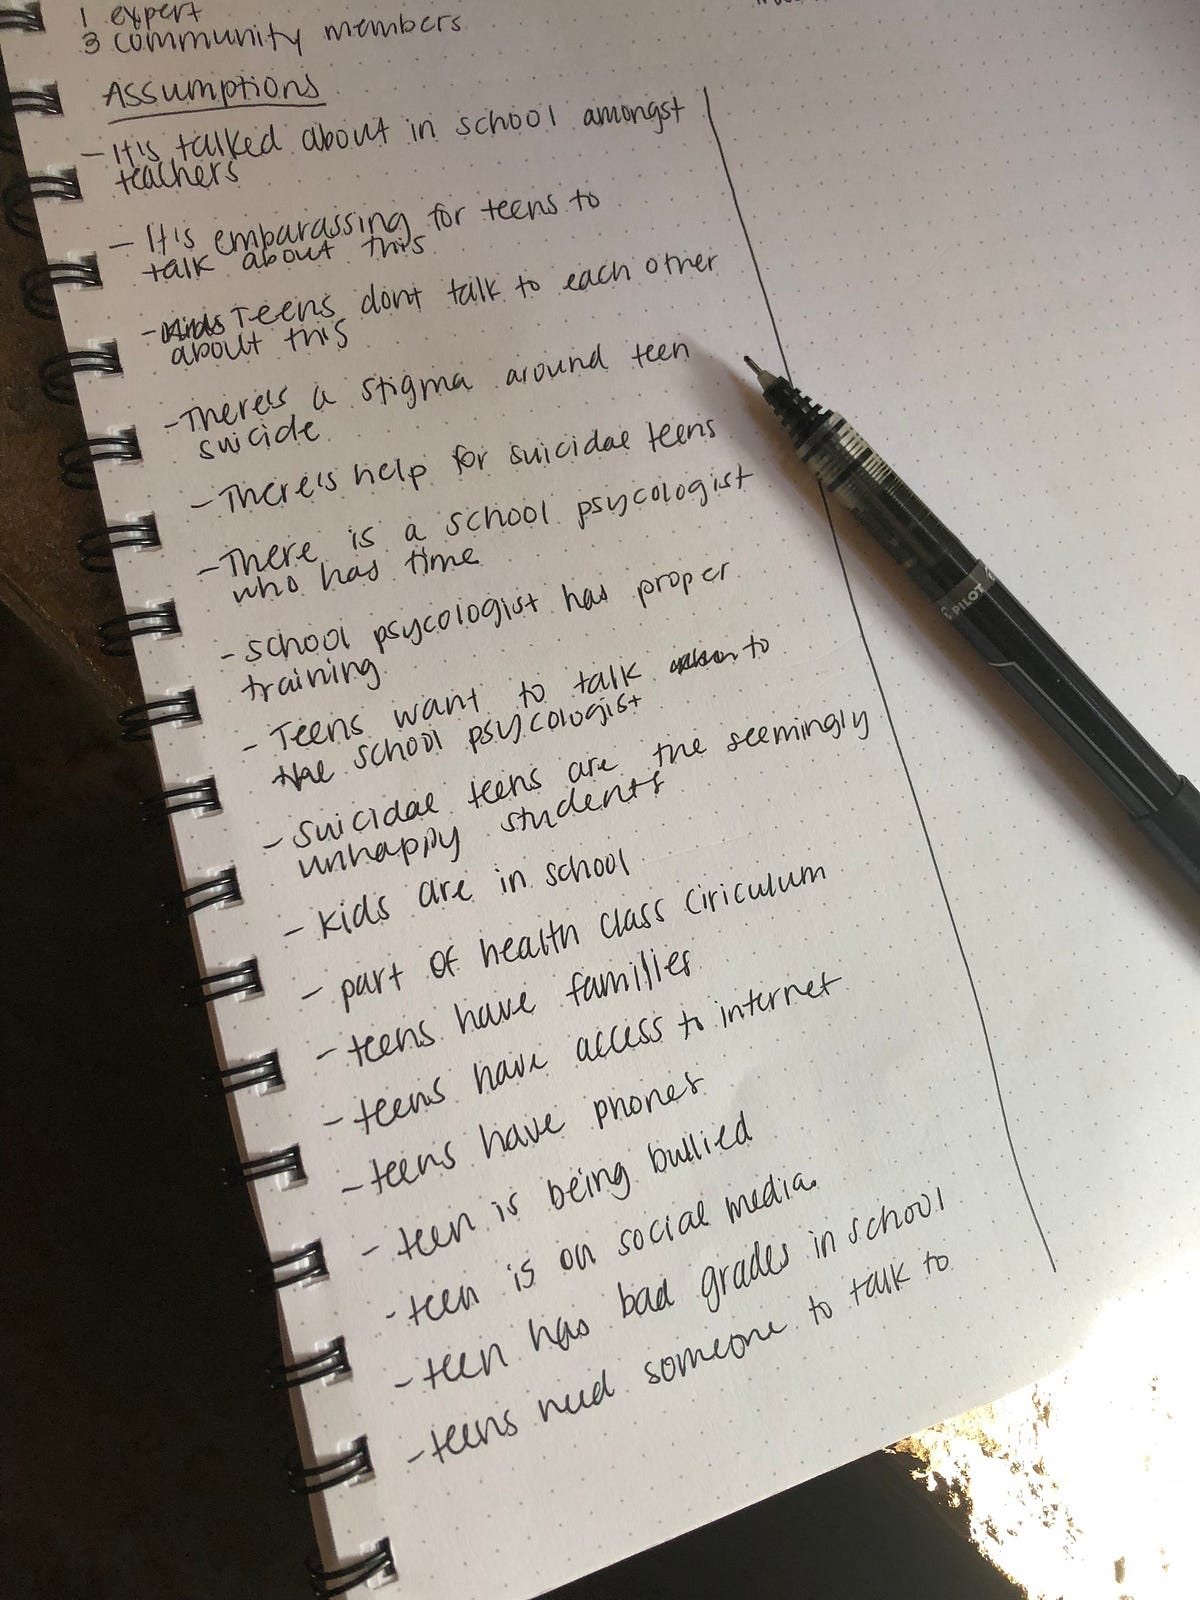 1 expert
3 community members
Assumptions
- It's talked about in school amongst
teachers
- It's embarassing for teens to
talk about this
- Kids Teens dont talk to each other
about this
- There's a stigma around teen
suicide
- There's help for suicidal teens
- There is a school psycologist
who has time
- school psycologist has proper
training
- Teens want to talk to
the school psycologist
- Suicidal teens are the seemingly
unhappy students
- kids are in school
- part of health class ciriculum
- teens have families
- teens have access to internet
- teens have phones
- teen is being bullied
- teen is on social media
- teen has bad grades in school
- teens need someone to talk to
PILOT